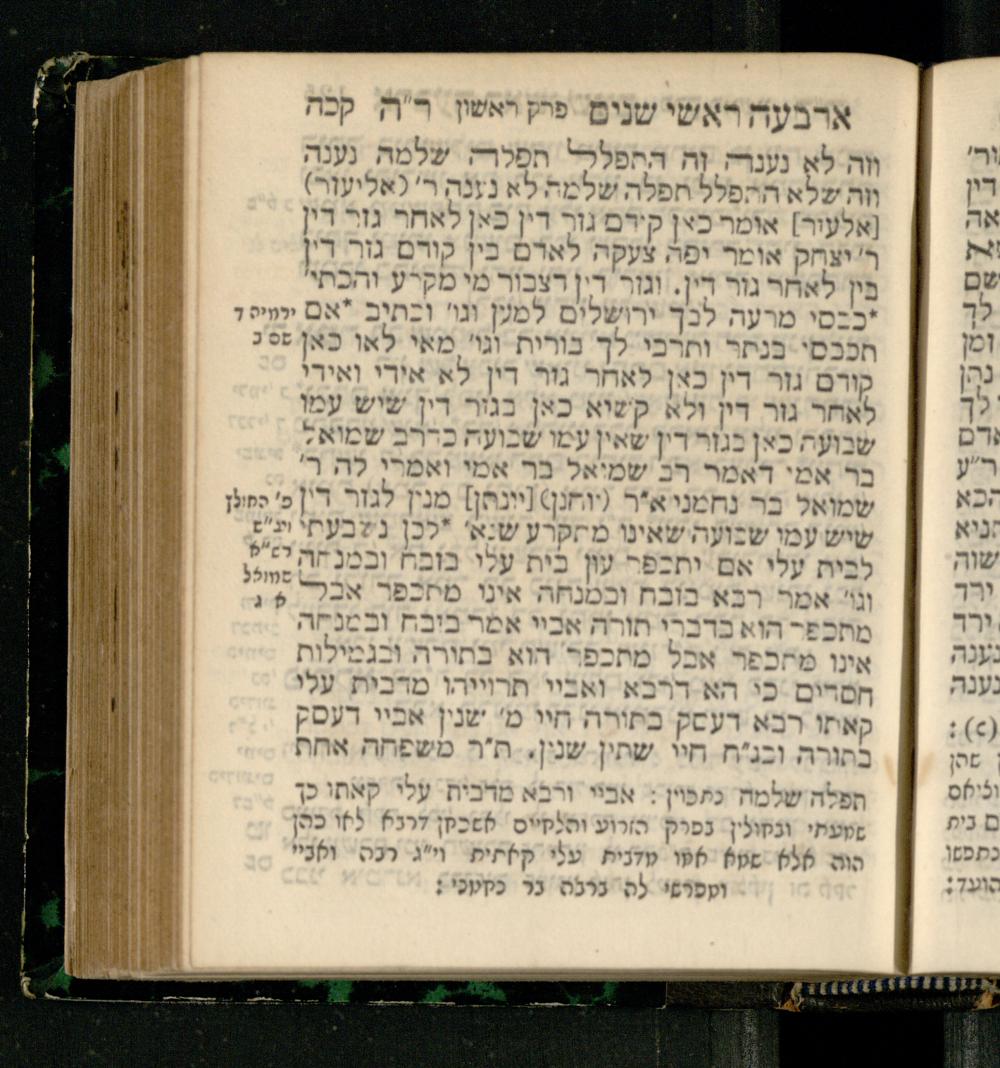 ארבעה ראשי שנים פרק ראשון ר"ה קכה
וזה לא נענה זה התפלל תפלה שלמה נענה
וזה שלא התפלל תפלה שלמה לא נענה ר' (אליעזר)
[אלעזר] אומר כאן קודם גזר דין כאן לאחר גזר דין
ר' יצחק אומר יפה צעקה לאדם בין קודם גזר דין
בין לאחר גזר דין. וגזר דין דצבור מי מקרע והכתי'
*כבסי מרעה לבך ירושלים למען וגו' וכתיב *אם
תכבסי בנתר ותרבי לך בורית וגו' מאי לאו כאן
קודם גזר דין כאן לאחר גזר דין לא אידי ואידי
לאחר גזר דין ולא קשיא כאן בגזר דין שיש עמו
שבועה כאן בגזר דין שאין עמו שבועה כדרב שמואל
בר אמי דאמר רב שמואל בר אמי ואמרי לה ר'
שמואל בר נחמני א"ר (יוחנן) [יונתן] מנין לגזר דין
שיש עמו שבועה שאינו מתקרע שנא' *לכן נשבעתי
לבית עלי אם יתכפר עון בית עלי בזבח ובמנחה
וגו' אמר רבא בזבח ובמנחה אינו מתכפר אבל
מתכפר הוא בדברי תורה אביי אמר בזבח ובמנחה
אינו מתכפר אבל מתכפר הוא בתורה ובגמילות
חסדים כי הא דרבא ואביי תרוייהו מדבית עלי
קאתו רבא דעסק בתורה חיי מ' שנין אביי דעסק
בתורה ובג"ח חיי שתין שנין. ת"ר משפחה אחת
תפלה שלמה נתכוין : אביי ורבא מדבית עלי קאתו כך
שמעתי ובחולין בפרק הזרוע והלחיים אשכחן דרבא לאו כהן
הוה אלא שמא אמו מדבית עלי קאתית וי"ג רבה ואביי
ומפרשי לה ברבה בר נחמני :
ירמיה ד
שם ב
פ' החולץ
ויג"ש
רש"א
שמואל
א ג